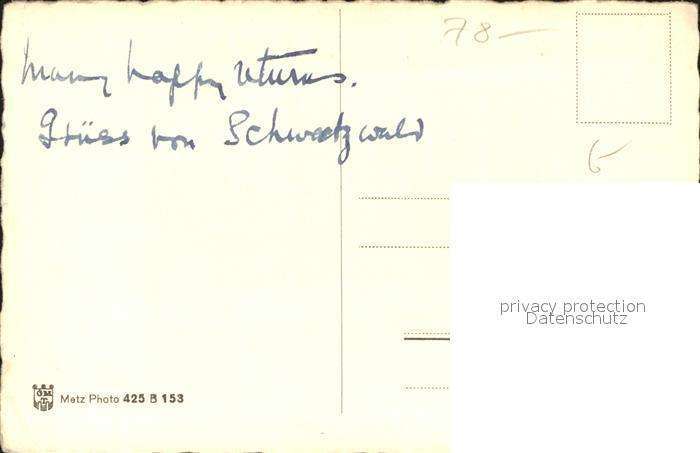 78-
Many happy returns.
Grüss von Schwartzwald
6-
privacy protection
Datenschutz
Metz Photo 425 B 153